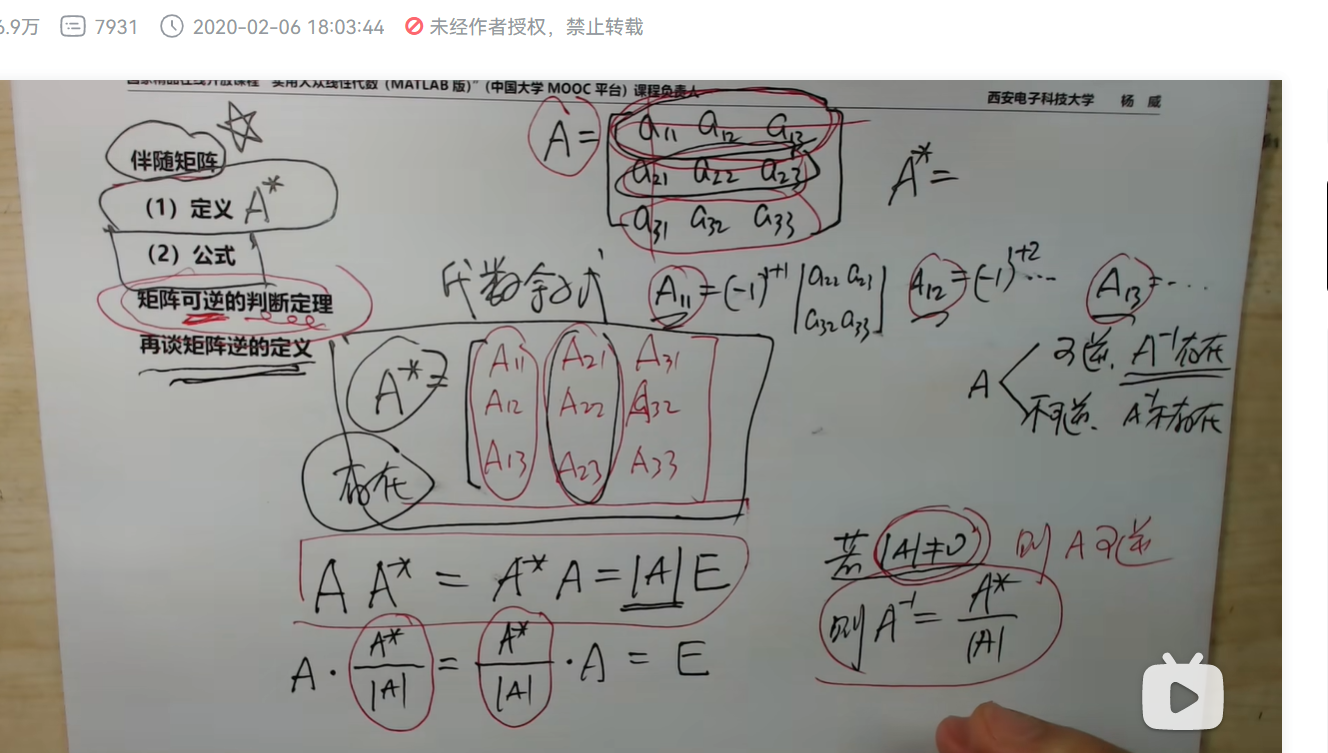 6.9万 7931 2020-02-06 18:03:44 未经作者授权，禁止转载
国家精品在线开放课程"实用大众线性代数（MATLAB 版）"（中国大学 MOOC 平台）课程负责人
西安电子科技大学 杨 威
伴随矩阵
（1）定义 A*
（2）公式
矩阵可逆的判断定理
再谈矩阵逆的定义
A=
a11 a12 a13
a21 a22 a23
a31 a32 a33
A*=
代数余子式
A11=(-1)^1+1 |a22 a23
a32 a33|
A12=(-1)^1+2 ...
A13=...
A*=
A11 A21 A31
A12 A22 A32
A13 A23 A33
存在
A
可逆. A^-1存在
不可逆. A^-1不存在
A A* = A* A = |A| E
A · A*/|A| = A*/|A| · A = E
若 |A|≠0 则 A 可逆
则 A^-1 = A*/|A|